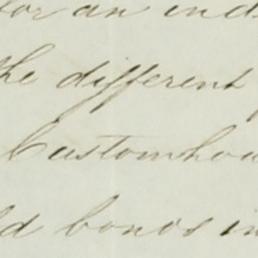 for an ind
the different
Customhou
ld bonds in